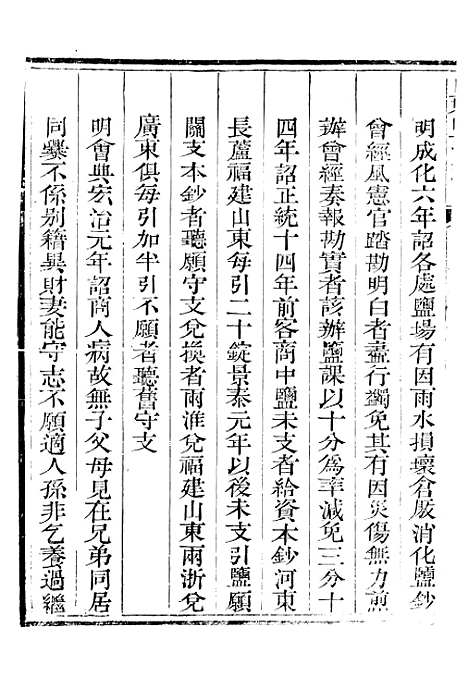 明成化六年詔各處鹽場有因雨水損壞倉厫消化鹽鈔
曾經風憲官踏勘明白者盡行蠲免其有因災傷無力煎
辦曾經奏報勘實者該辦鹽課以十分為率減免三分十
四年詔正統十四年前客商中鹽未支者給資本鈔河東
長蘆福建山東每引二十錠景泰元年以後未支引鹽願
關支本鈔者聽願守支兌換者兩淮兌福建山東兩浙兌
廣東俱每引加半引不願者聽舊守支
明會典宏治元年詔商人病故無子父母見在兄弟同居
同爨不係别籍異財妻能守志不願適人孫非乞養過繼